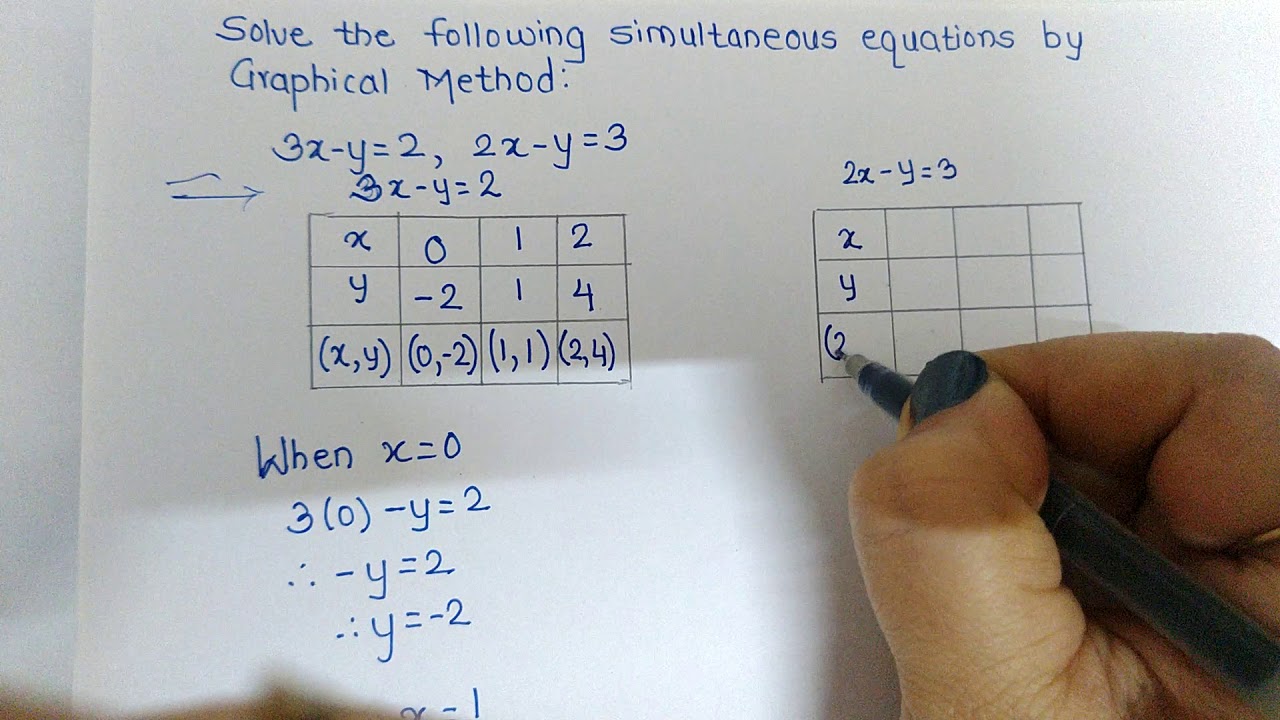 Solve the following simultaneous equations by
Graphical Method:
3x-y=2, 2x-y=3
3x-y=2
x 0 1 2
y -2 1 4
(x,y) (0,-2) (1,1) (2,4)
When x=0
3(0)-y=2
∴ -y=2
∴ y=-2
2x-y=3
x
y